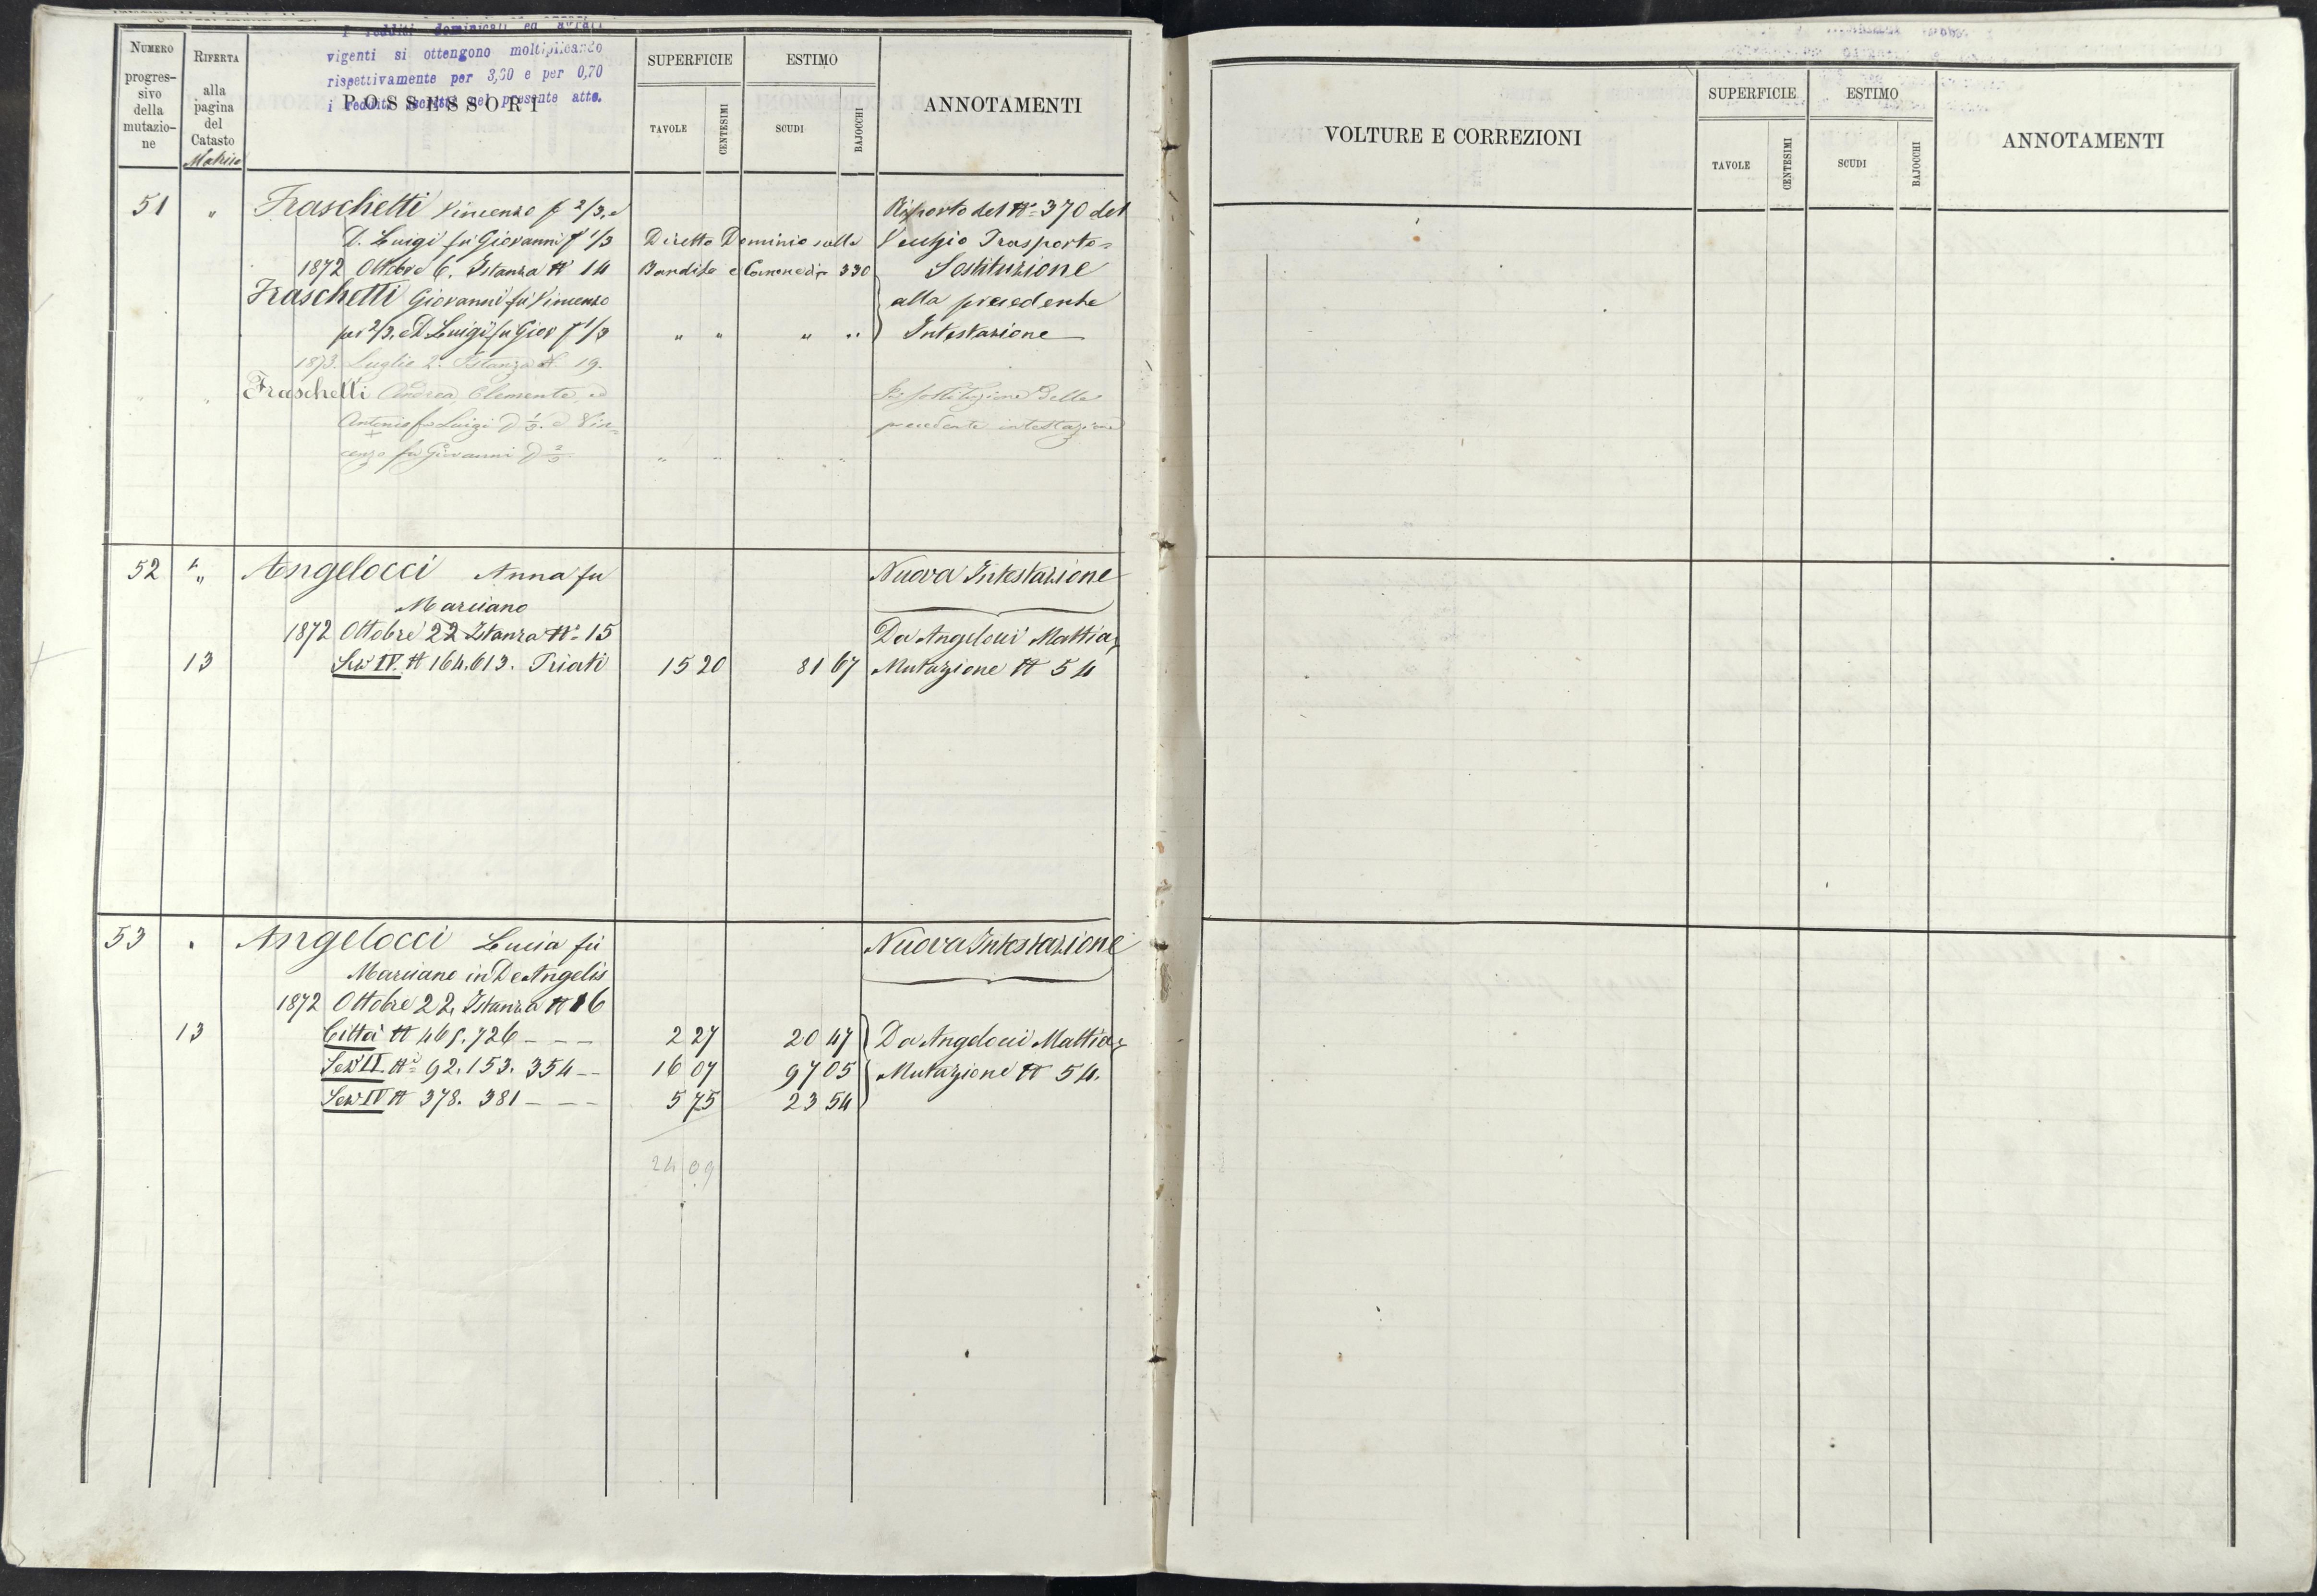 I redditi dominicali ed agrari
vigenti si ottengono moltiplicando
rispettivamente per 3,00 e per 0,70
i redditi iscritti nel presente atto.
NUMERO progres- sivo della mutazio- ne
RIFERTA alla pagina del Catasto Matrice
POSSESSORI
SUPERFICIE
TAVOLE
CENTESIMI
ESTIMO
SCUDI
BAJOCCHI
ANNOTAMENTI
51 " Fraschetti Vincenzo p 2/3, e Riporto del N.º 370 del
D. Luigi fu Giovanni p 1/3 Diretto Dominio sulla Vecchio Trasporto=
1872 Ottobre 6. Istanza N. 14 Bandita e 330 Sostituzione
Fraschetti Giovanni fu Vincenzo alla precedente
per 2/3. e D. Luigi fu Giov p 1/3 " " " " Intestazione
1873. Luglio 2. Istanza N. 19.
" " Fraschetti Andrea, Clemente, ed Per sostituzione della
Antonio fu Luigi p 1/3. e Vin= precedente intestazione
cenzo fu Giovanni p 2/3. " " " "
52 " Angelocci Anna fu Nuova Intestazione
Marciano
1872 Ottobre 22 Istanza N.º 15 Da Angelocci Mattia
13 Sez IV. N 164.613. Triati 15 20 81 67 Mutazione N 54
53 " Angelocci Lucia fu Nuova Intestazione
Marciano in De Angelis
1872 Ottobre 22, Istanza N 16
13 Città N 465.726 - - - 2 27 20 47 Da Angelocci Mattia
Sez II. N.i 92.153. 354 - - 16 07 97 05 Mutazione N 54.
Sez IV N 378. 381 - - - 5 75 23 54
24 09
VOLTURE E CORREZIONI
SUPERFICIE
TAVOLE
CENTESIMI
ESTIMO
SCUDI
BAJOCCHI
ANNOTAMENTI